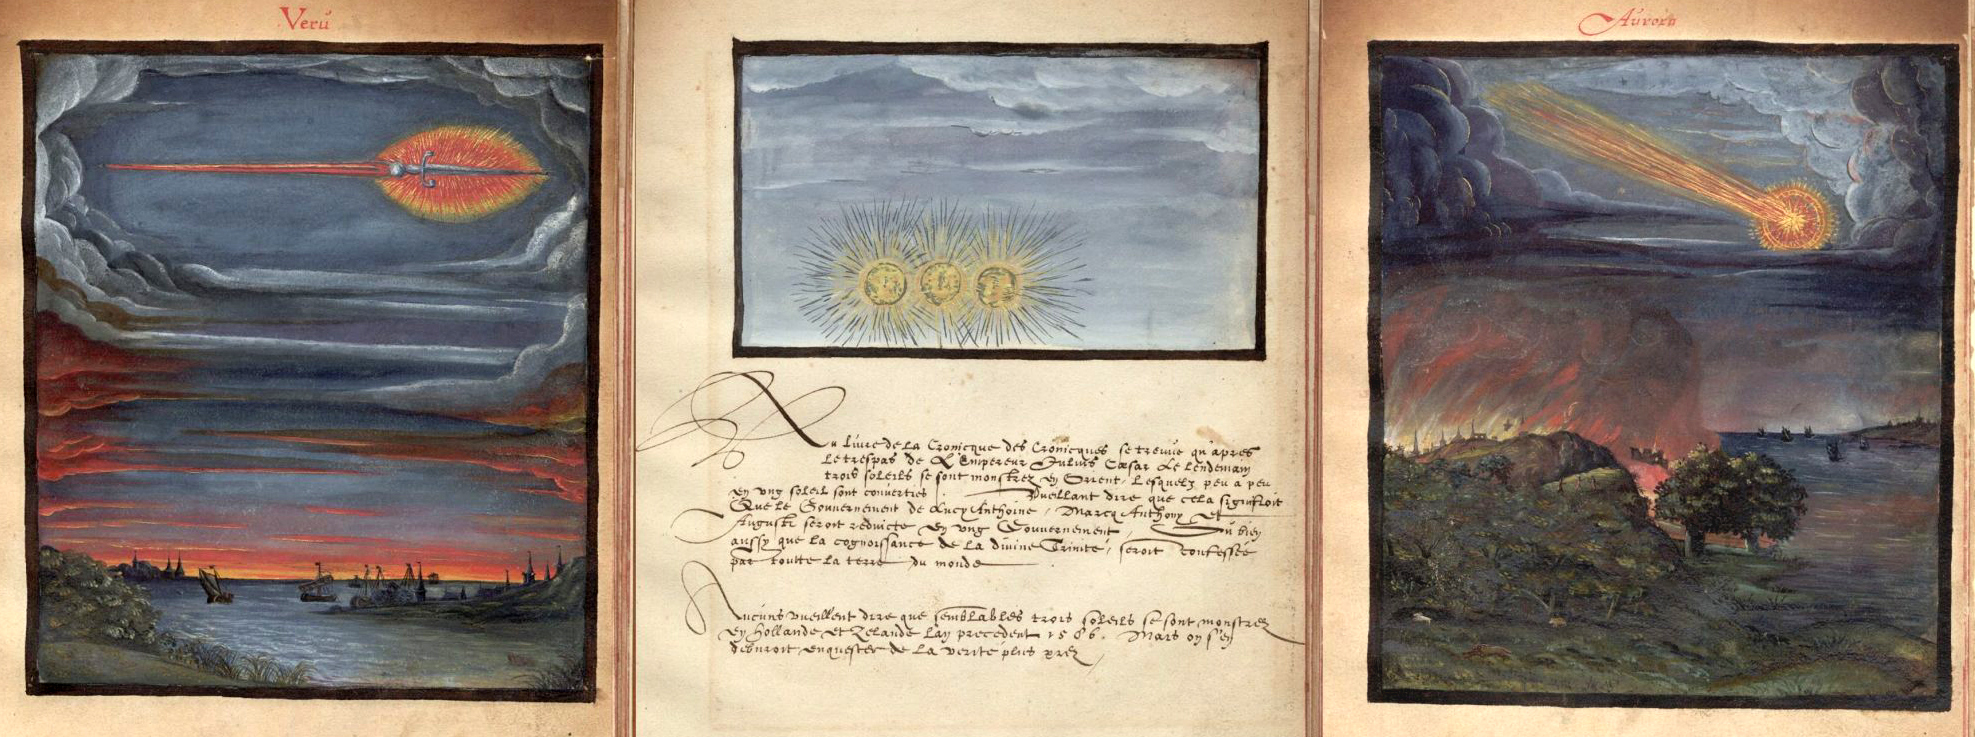 Verú
Au livre de la Cronicque des Cronicques se treuve qu'apres
le trespas de L'Empereur Julius Cæsar le lendemain
trois soleils se sont monstrez en Orient, lesquelz peu a peu
en ung soleil sont convertis. Vueillant dire que cela signifioit
Que le Gouvernement de Lucy Anthoine, Marcq Anthony et
Augusti seroit reduicte en ung Gouvernement, Ou bien
aussy que la cognoissance de la divine Trinité, seroit confessée
par toutte la terre du monde
Aucuns vueillent dire que semblables trois soleils se sont monstrez
en Hollande et Zelande l'an precedent 1566. Mais on s'en
debvroit enquester de la verité plus prez
Aurora